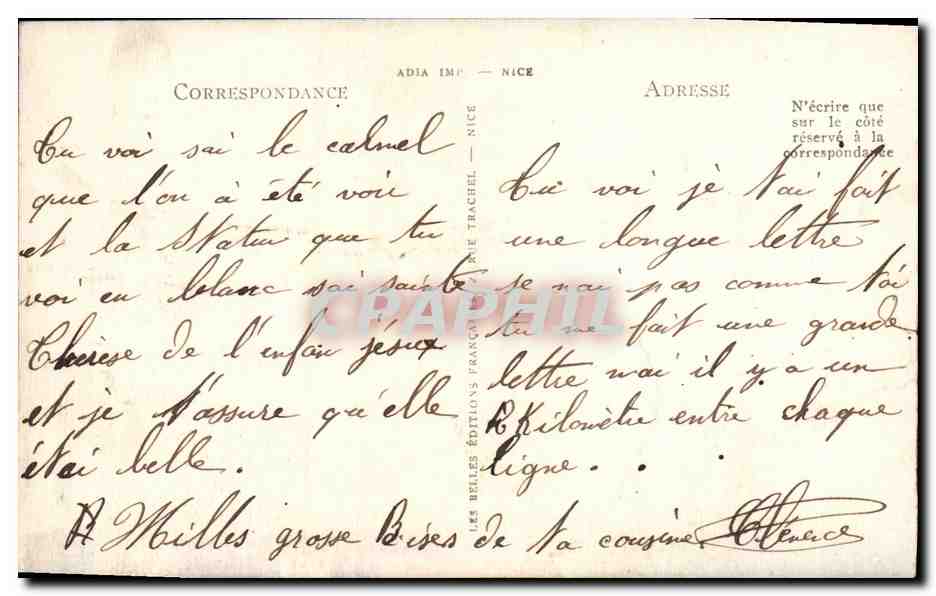 ADIA IMP. — NICE
CORRESPONDANCE
ADRESSE
N'écrire que
sur le côté
réservé à la
correspondance
Tu voi sai le calmel
que l'on à été voir
et la Statue que tu
voi en blanc sai sainte
Thérèse de l'enfan jésux
et je t'assure qu'elle
étai belle.
LES BELLES ÉDITIONS FRANÇAISES RUE TRACHEL — NICE
Tu voi je t'ai fait
une longue lettre
se nai pas comme toi
tu me fait une grande
lettre mai il y a un
Kilomètre entre chaque
ligne...
Milles grosse Bises de ta cousine Clémence
CPAPHIL